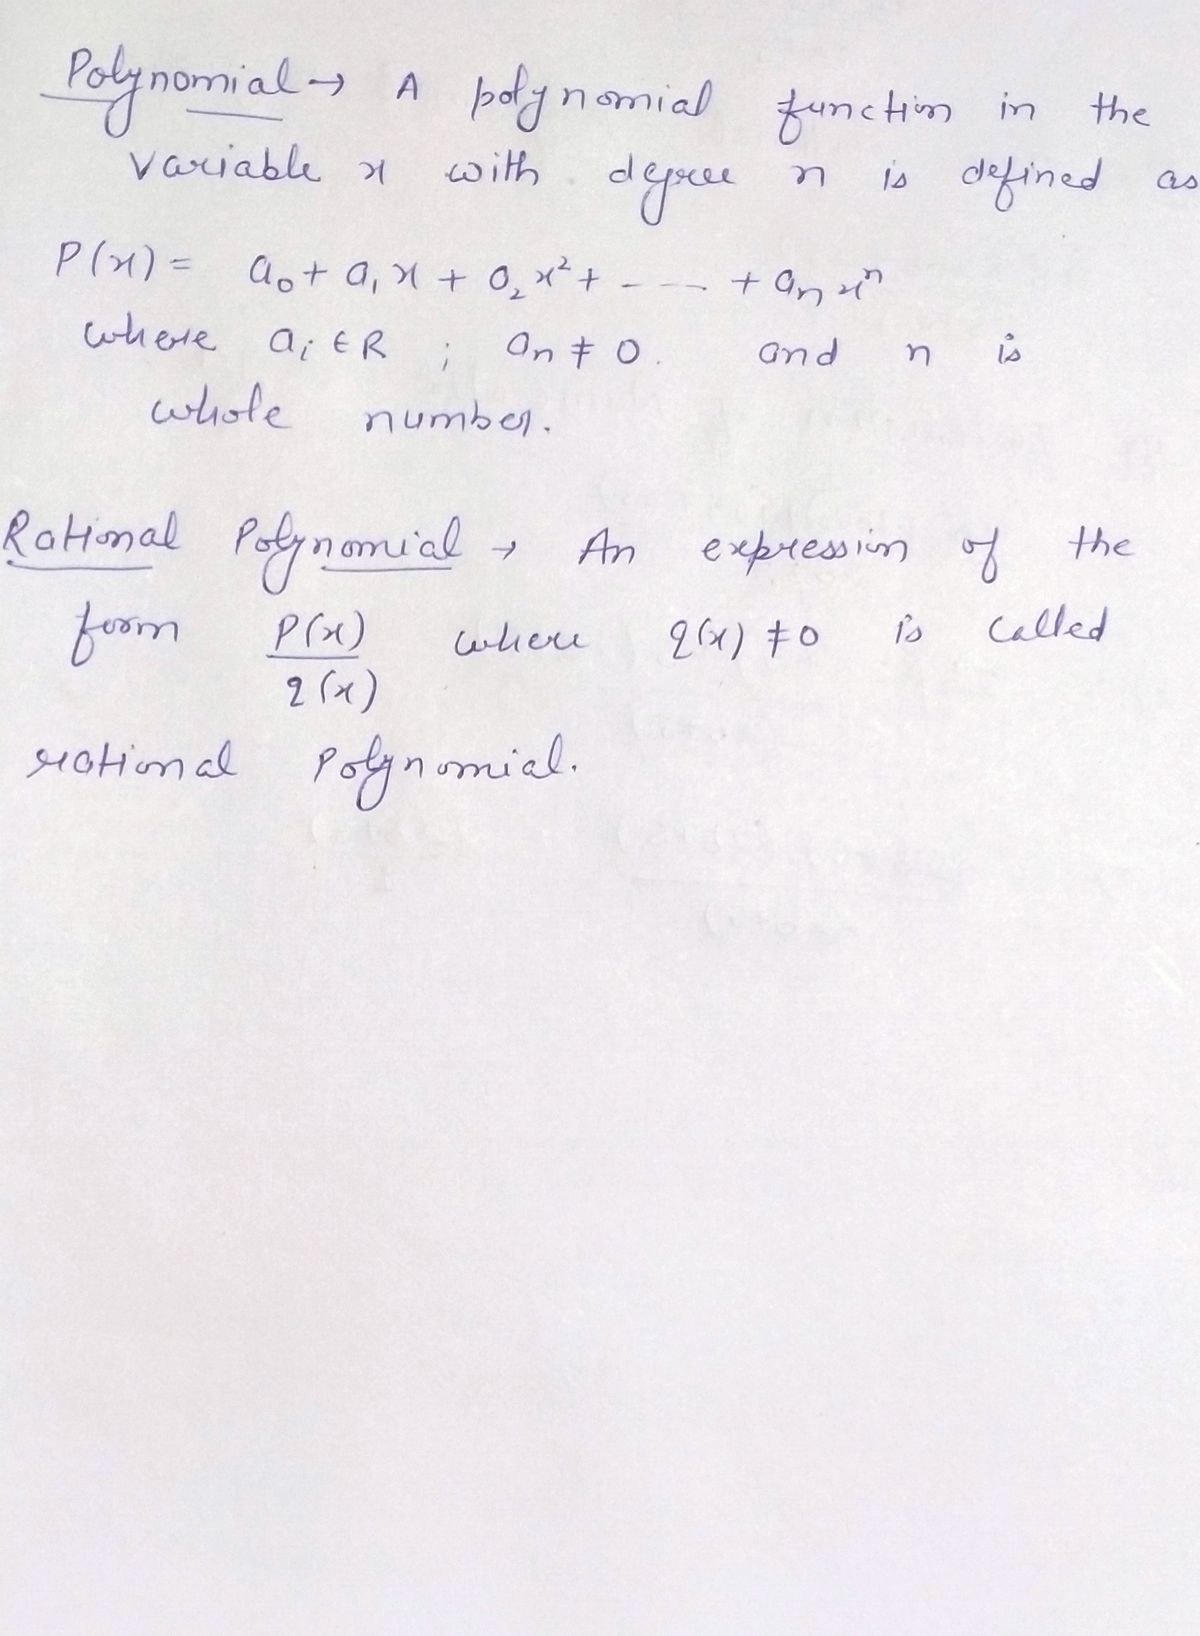 Polynomial → A polynomial function in the
variable x with degree n is defined as
P(x) = a₀ + a₁x + a₂x² + - - - - + aₙxⁿ
where aᵢ ∈ R ; aₙ ≠ 0. and n is
whole number.
Rational Polynomial → An expression of the
form P(x)/q(x) where q(x) ≠ 0 is called
rational Polynomial.